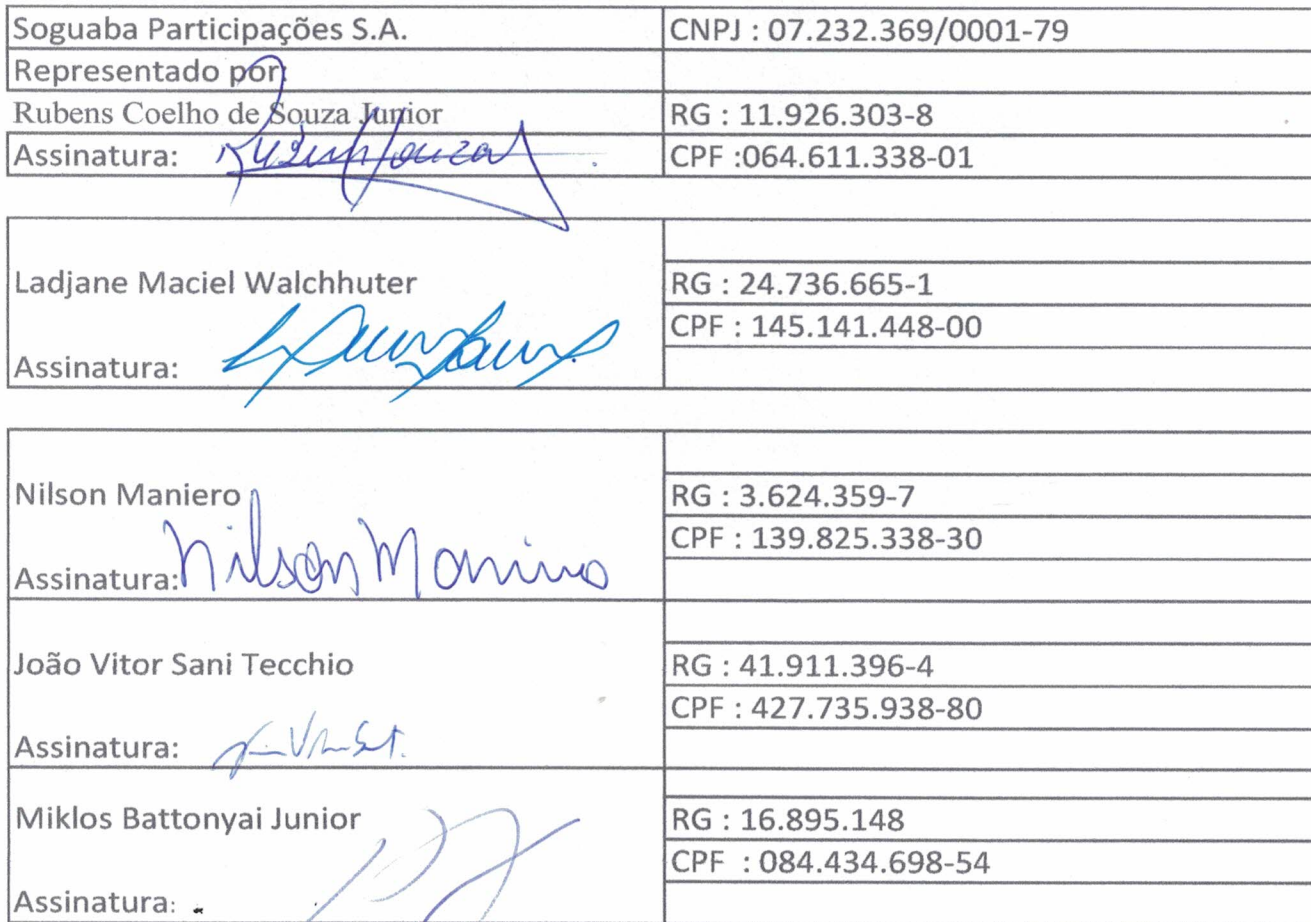 Soguaba Participações S.A. CNPJ : 07.232.369/0001-79
Representado por:
Rubens Coelho de Souza Junior RG : 11.926.303-8
Assinatura: CPF :064.611.338-01
Ladjane Maciel Walchhuter RG : 24.736.665-1
CPF : 145.141.448-00
Assinatura:
Nilson Maniero RG : 3.624.359-7
CPF : 139.825.338-30
Assinatura: Nilson Maniero
João Vitor Sani Tecchio RG : 41.911.396-4
CPF : 427.735.938-80
Assinatura:
Miklos Battonyai Junior RG : 16.895.148
CPF : 084.434.698-54
Assinatura: